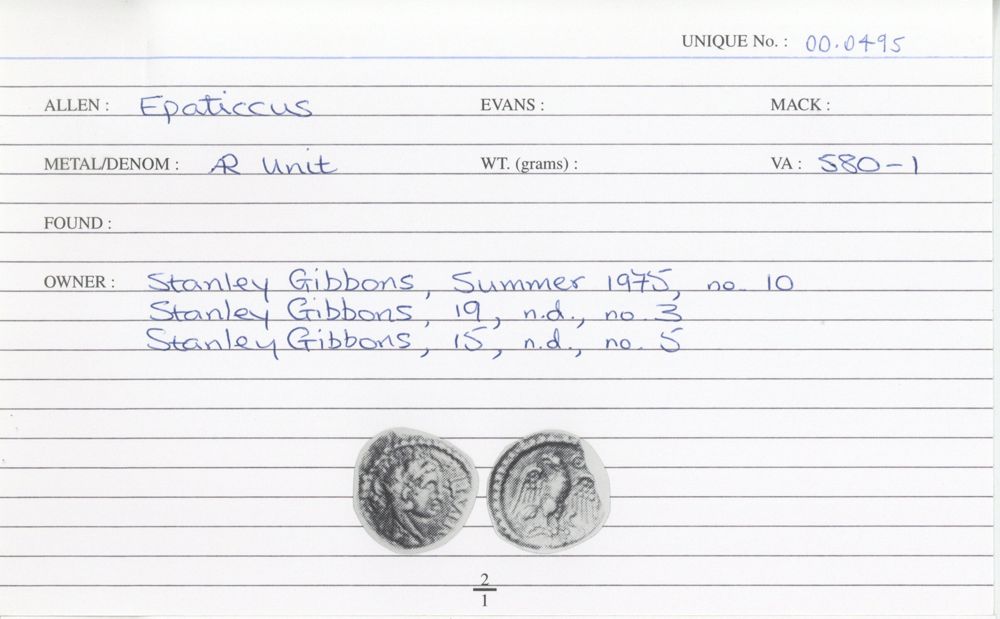 UNIQUE No. : 00.0495
ALLEN : Epaticcus EVANS : MACK :
METAL/DENOM : AR Unit WT. (grams) : VA : 580-1
FOUND :
OWNER : Stanley Gibbons, Summer 1975, no. 10
Stanley Gibbons, 19, n.d., no. 3
Stanley Gibbons, 15, n.d., no. 5
2
1